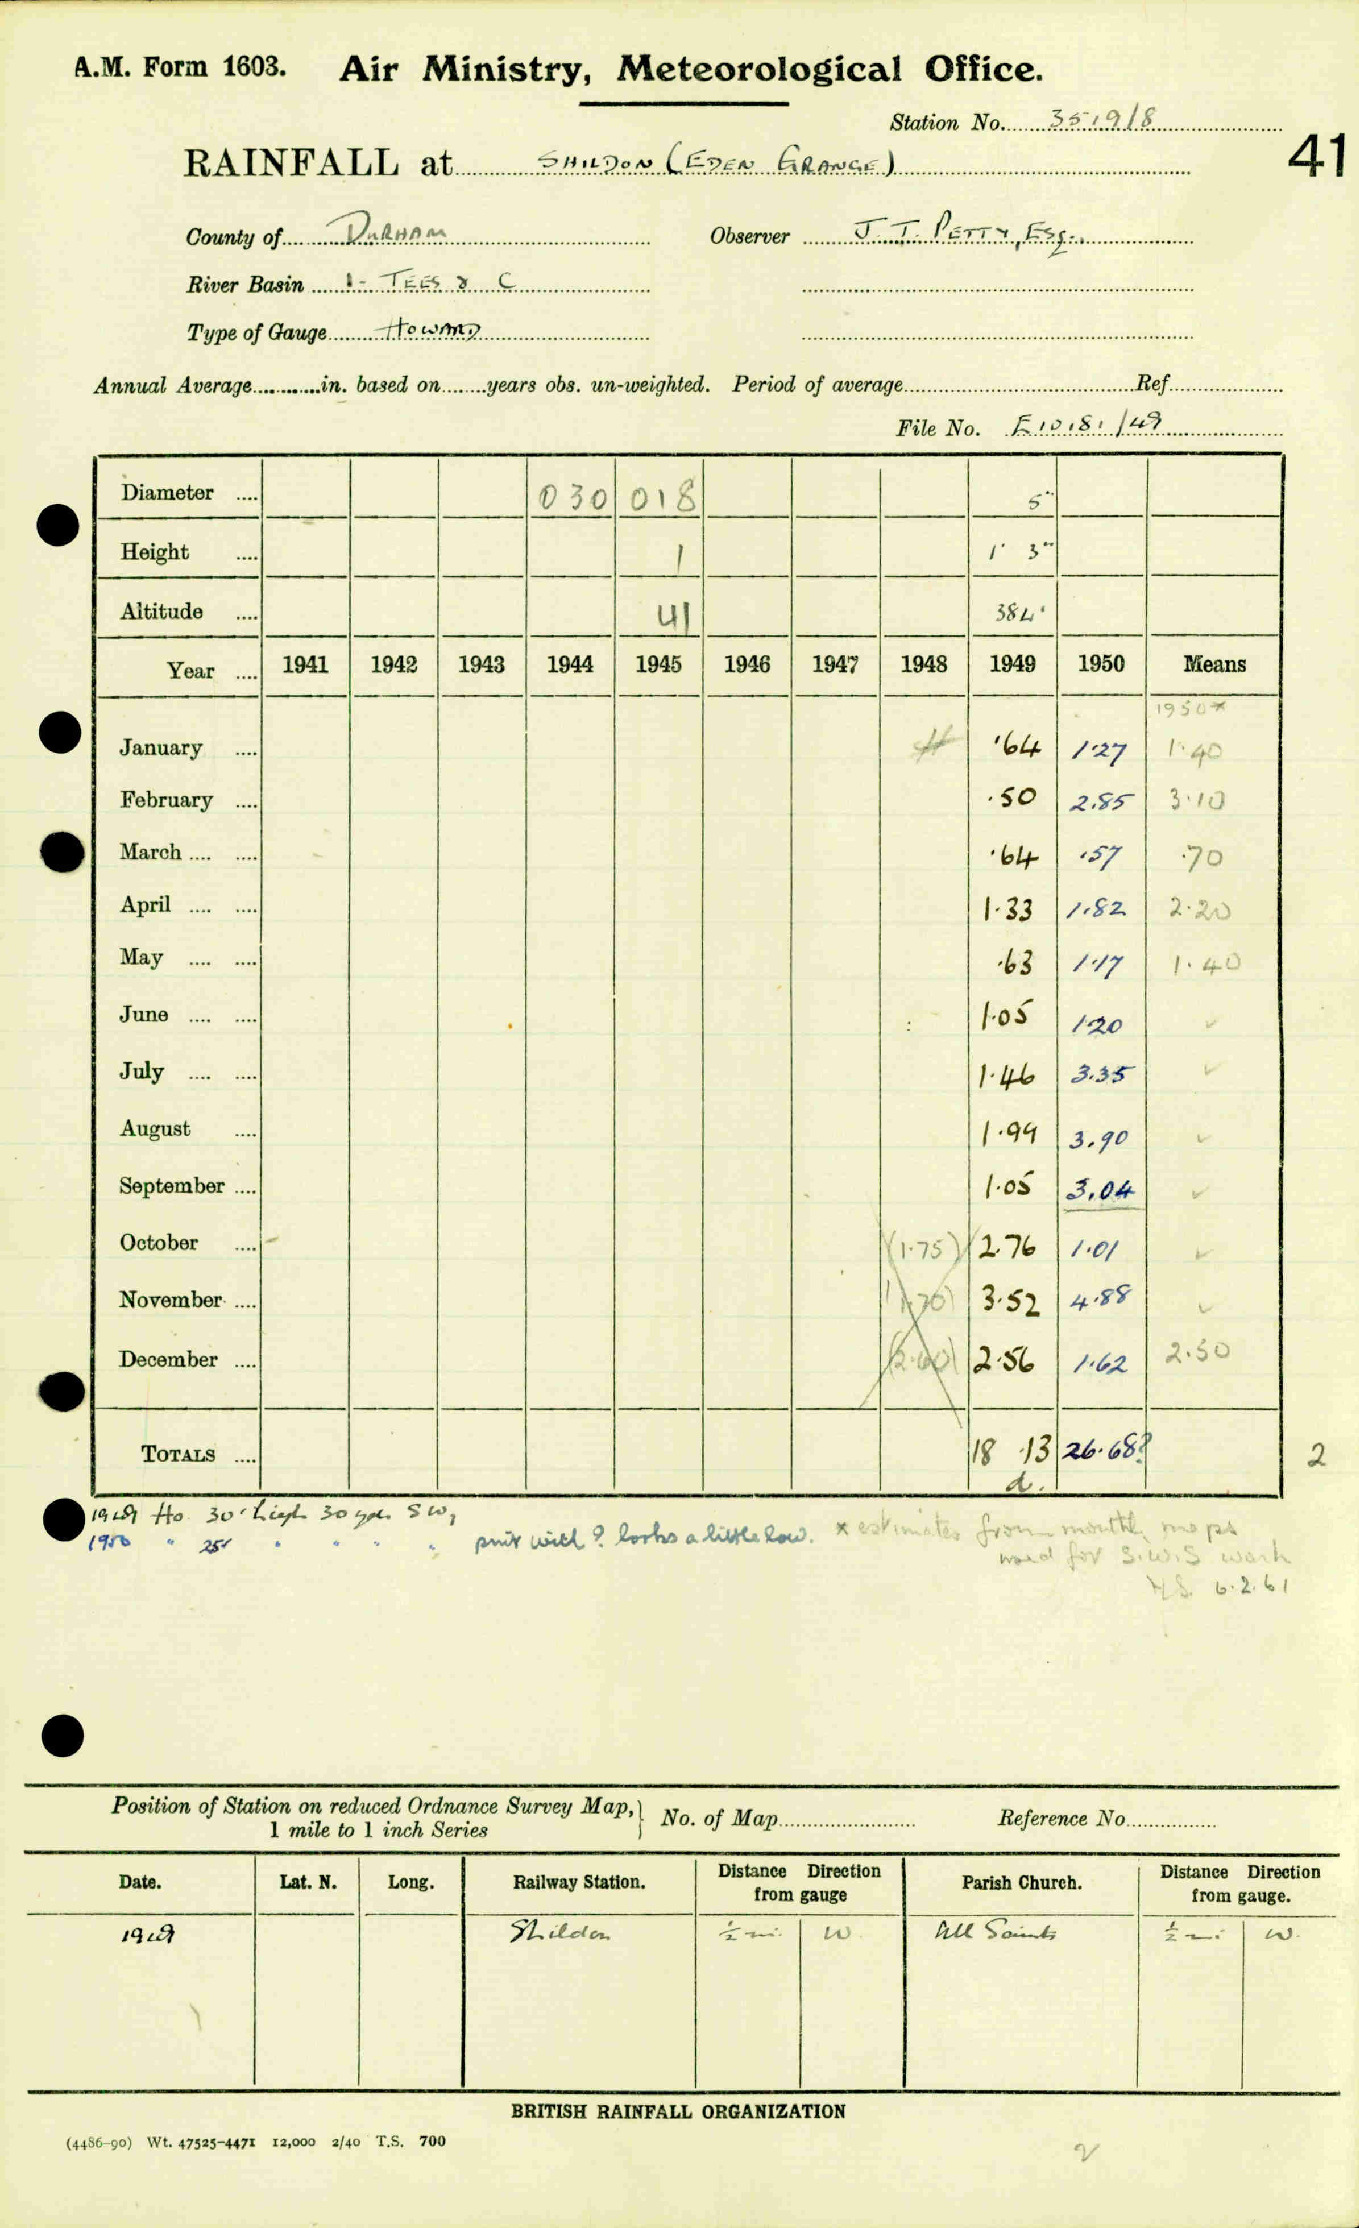 A.M. Form 1603. Air Ministry, Meteorological Office.
Station No. 3519/8
41
RAINFALL at SHILDON (EDEN GRANGE)
County of DURHAM Observer J. T. PETTY, ESQ.,
River Basin 1 - TEES & C
Type of Gauge HOWARD
Annual Average in. based on years obs. un-weighted. Period of average Ref
File No. E10181/49
Diameter .... 030 018 5"
Height .... 1 1' 3"
Altitude .... 41 384'
Year .... 1941 1942 1943 1944 1945 1946 1947 1948 1949 1950 Means
1950*
January .... H ·64 1·27 1·40
February .... ·50 2.85 3·10
March .... .... ·64 ·57 ·70
April .... .... 1·33 1.82 2·20
May .... .... ·63 1·17 1·40
June .... .... 1·05 1·20 ✓
July .... .... 1·46 3.35 ✓
August .... 1·99 3.90 ✓
September .... 1·05 3.04 ✓
October .... (1·75) 2·76 1·01 ✓
November .... (1·70) 3·52 4·88 ✓
December .... (2·60) 2·56 1·62 2·50
TOTALS .... 18 ·13 26·68? 2
d.
1949 Ho 30' high 30 yds SW,
1950 " 25' " " " " looks a little low. * estimates from monthly maps
used for S.W.S work
6.2.61
Position of Station on reduced Ordnance Survey Map, } No. of Map Reference No.
1 mile to 1 inch Series
Date. Lat. N. Long. Railway Station. Distance Direction from gauge Parish Church. Distance Direction from gauge.
1949 Shildon ½ mi. W All Saints ½ mi W.
BRITISH RAINFALL ORGANIZATION
(4486–90) Wt. 47525–4471 12,000 2/40 T.S. 700
2